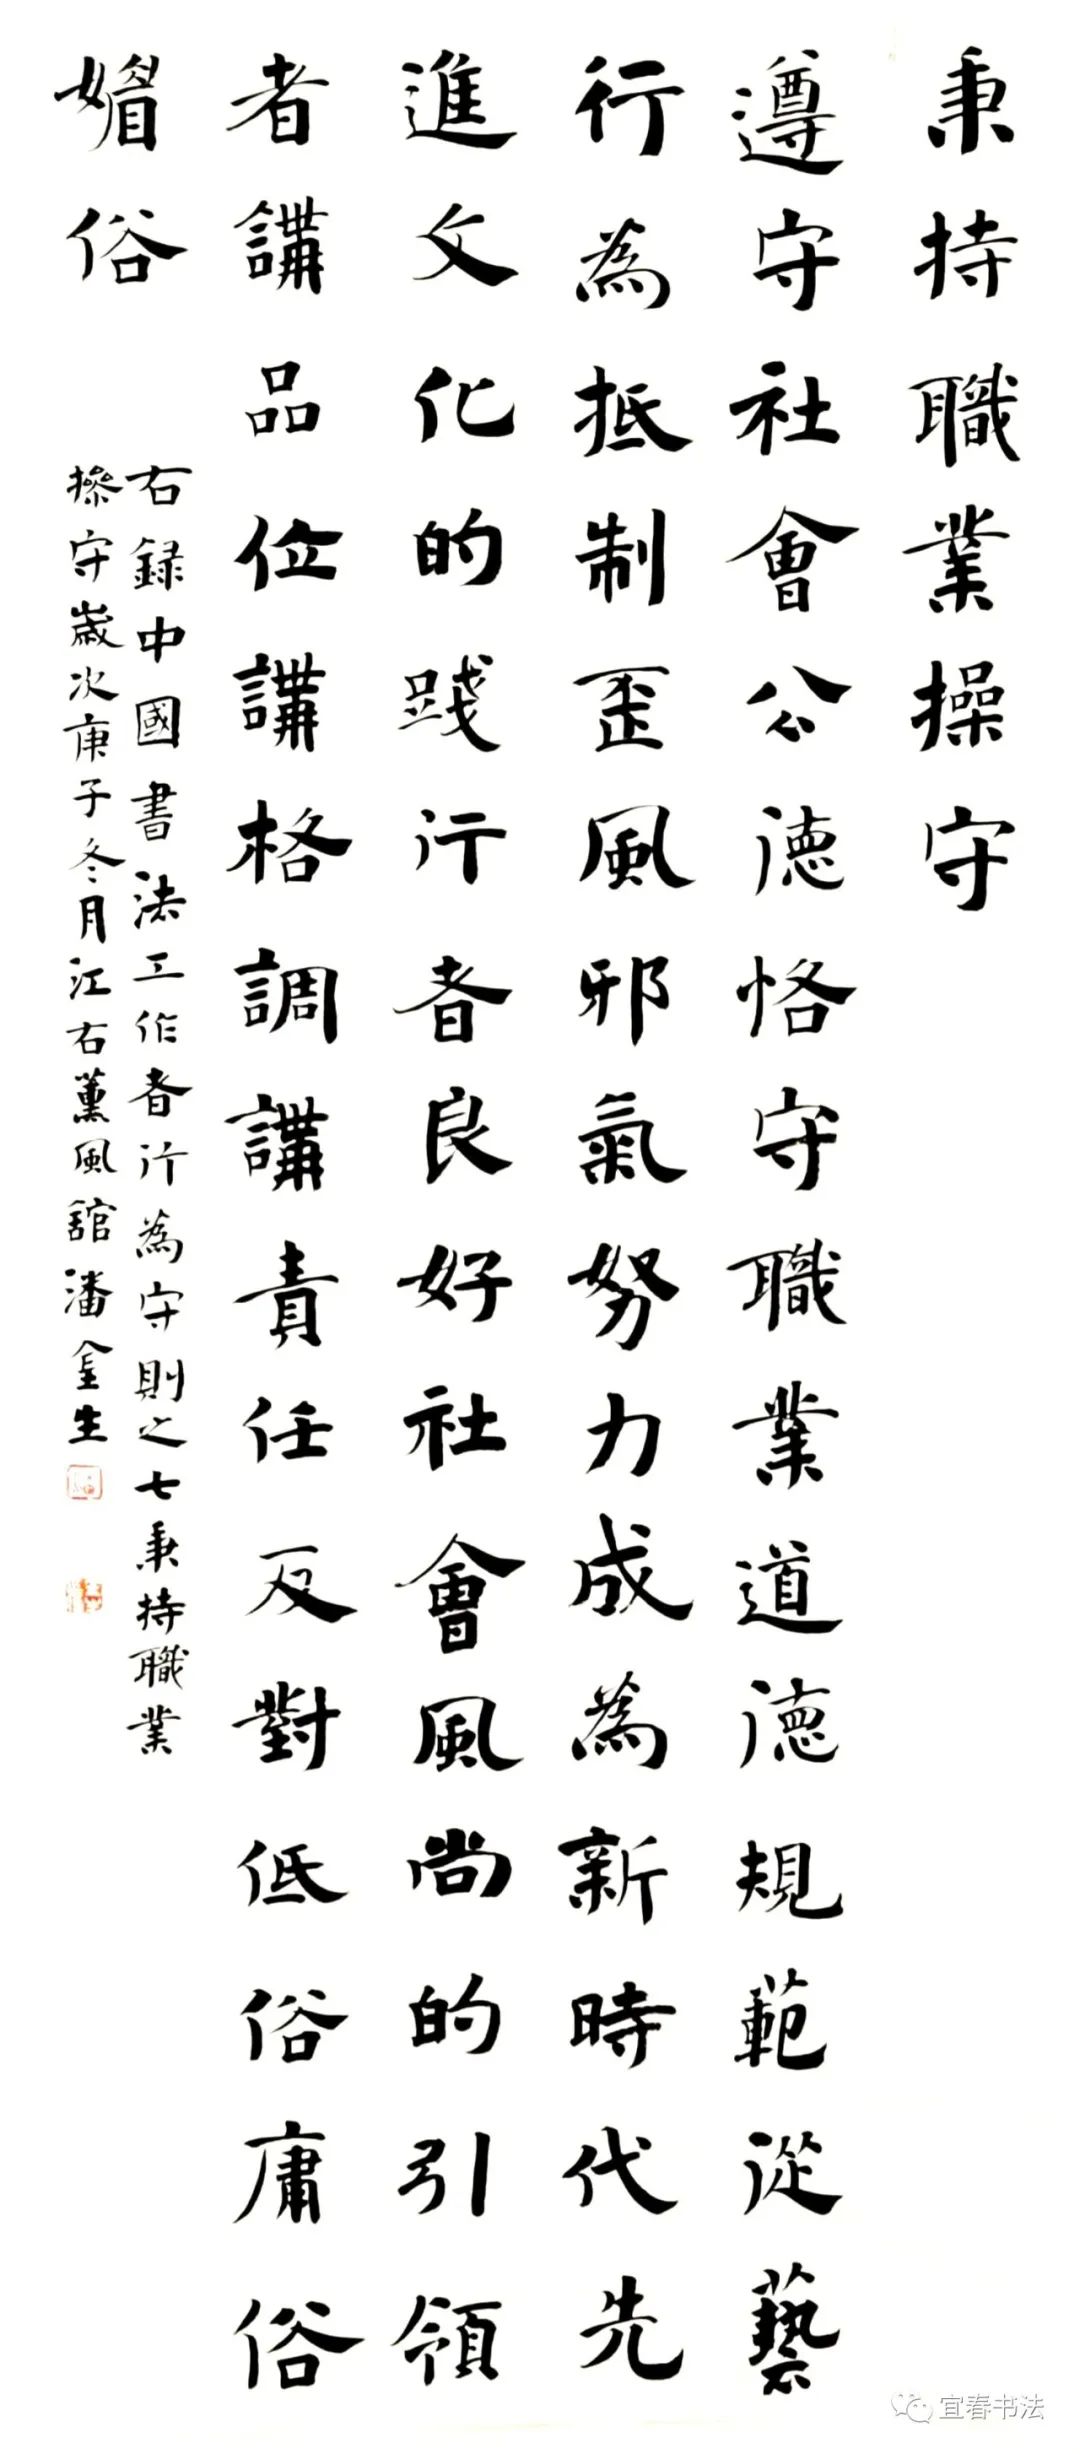 秉持職業操守
遵守社會公德恪守職業道德規範從藝
行為抵制歪風邪氣努力成為新時代先
進文化的踐行者良好社會風尚的引領
者講品位講格調講責任反對低俗庸俗
媚俗
右録中國書法工作者行為守則之七秉持職業
操守歲次庚子冬月江右薰風館潘金生
宜春书法